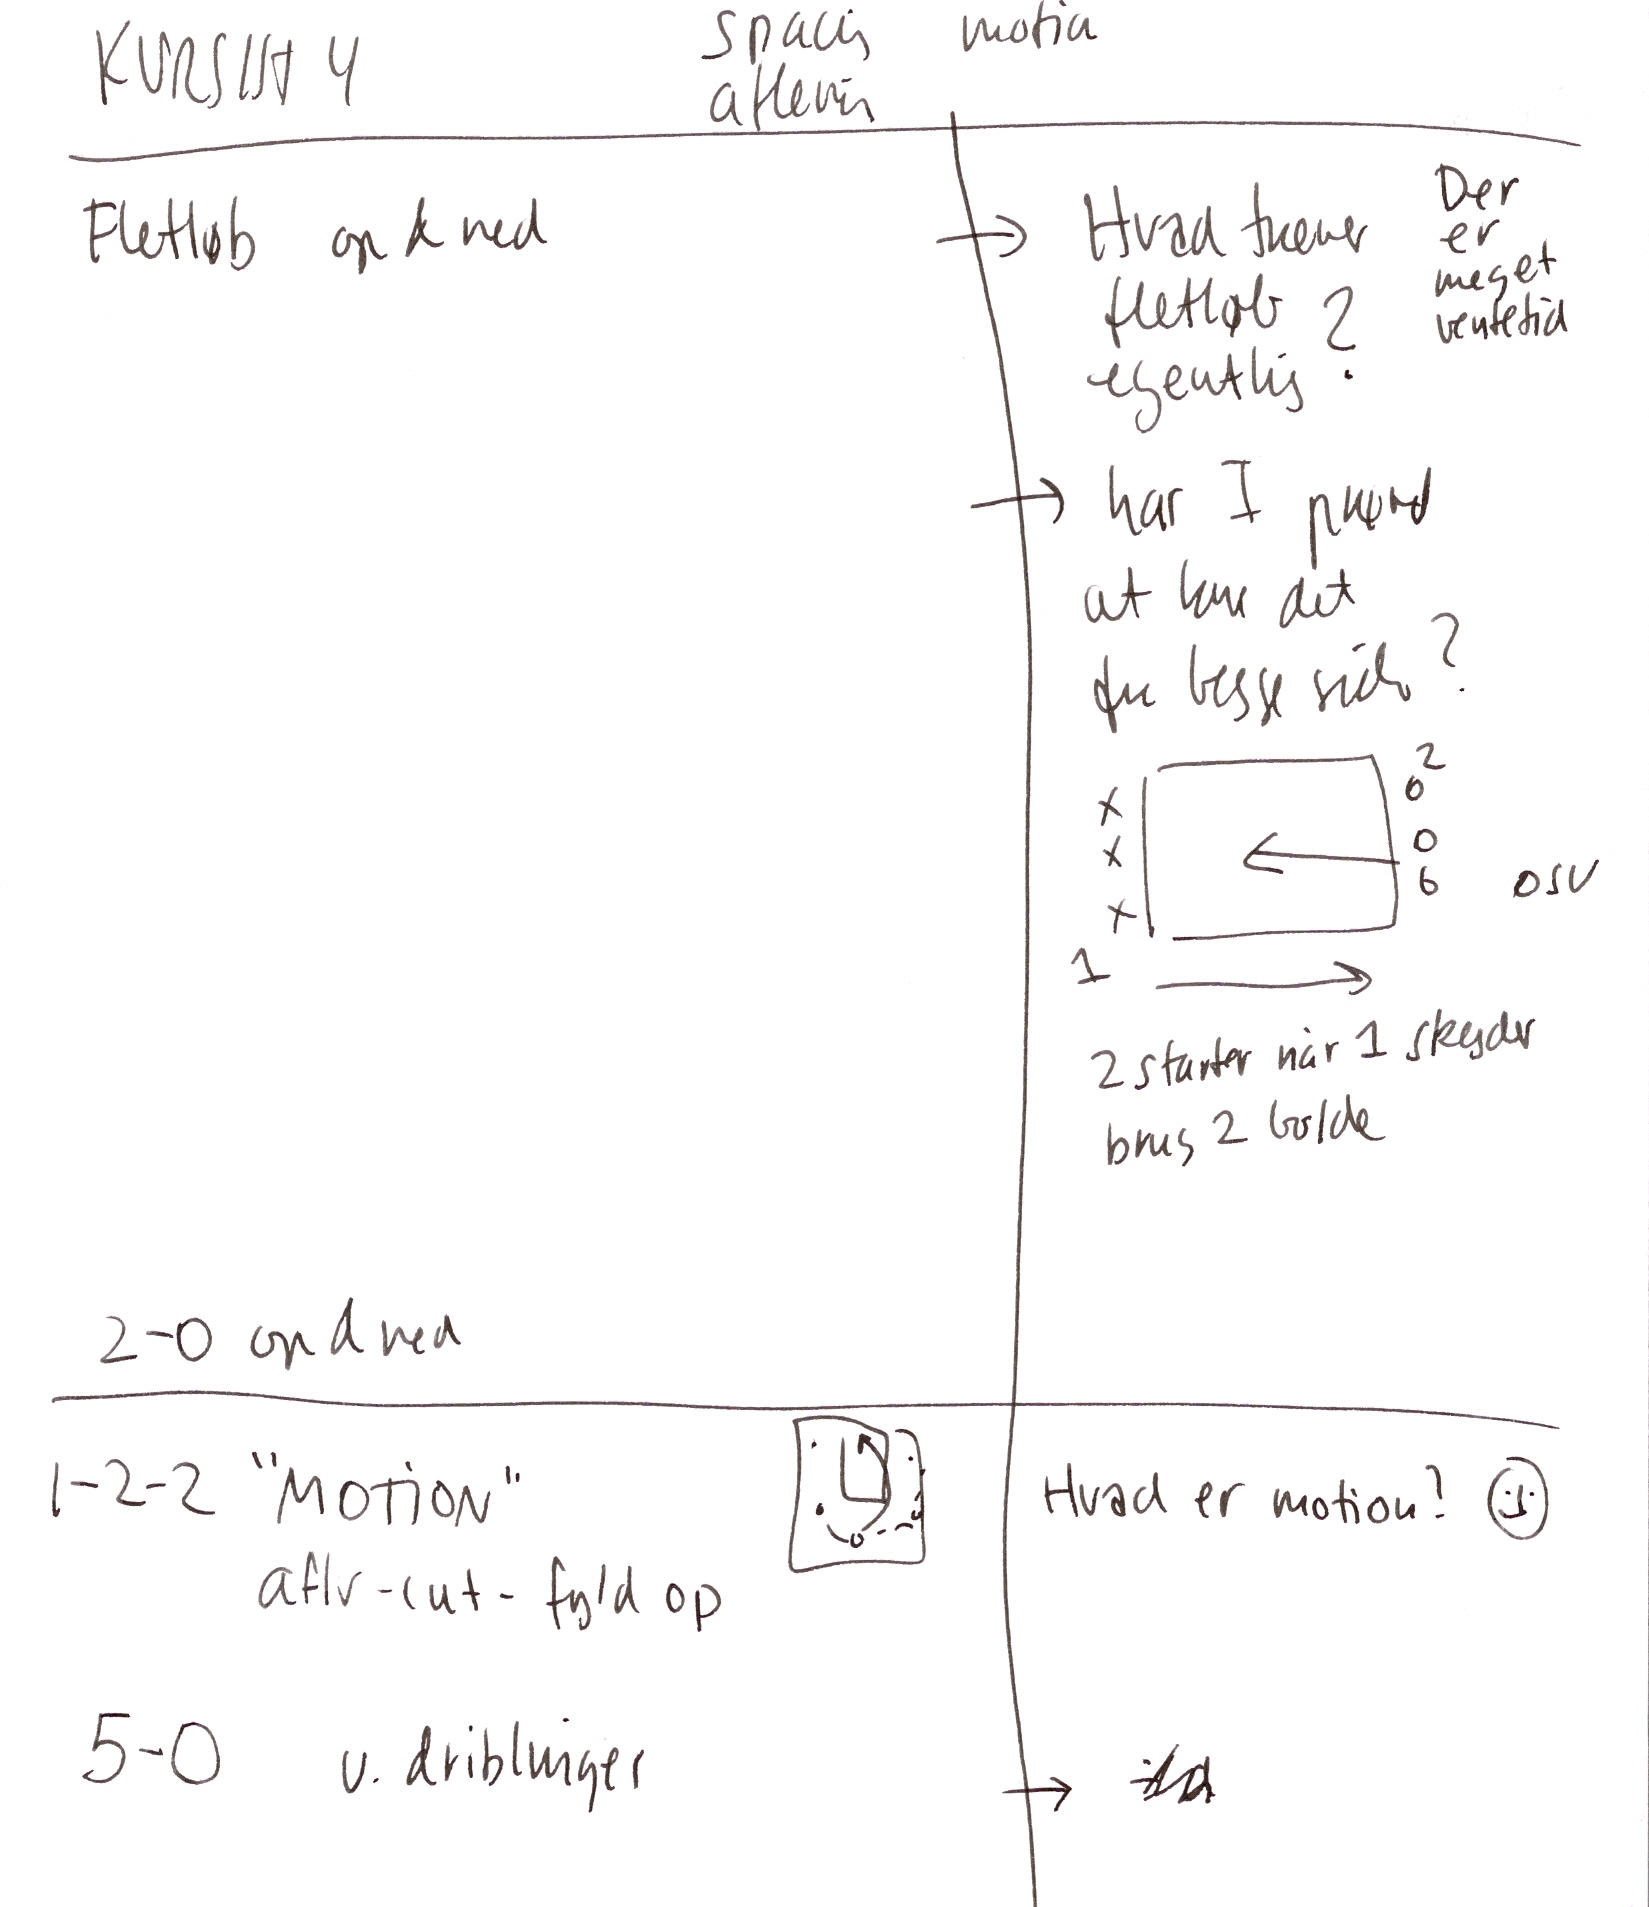 KURSIST 4
spacing motion
aflevering
Fletløb op & ned
Hvad træner
fletløb
egentlig ?
Der
er
meget
ventetid
har I prøvet
at køre det
fra begge sider ?
x
x
x
2
o
o
o
osv
1
2 starter når 1 skyder
brug 2 bolde
2-0 op & ned
1-2-2 "MOTION"
aflv - cut - fyld op
Hvad er motion?
5-0 u. driblinger